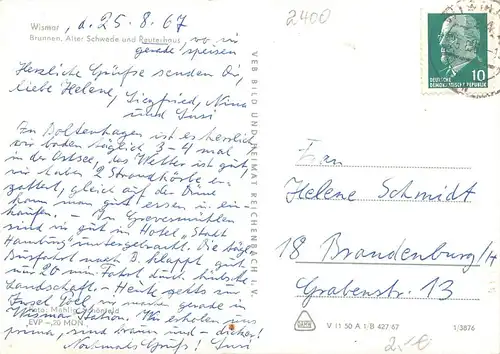 Wismar, d. 25. 8. 67
Brunnen, Alter Schwede und Reuterhaus wo wir
gerade speisen
Herzliche Grüße senden Dir,
liebe Helene, Siegfried, Nina
und Susi
In Boltenhagen ist es herrlich
wir baden täglich 3-4 mal
in der Ostsee, das Wetter ist gut,
wir haben 2 Strandkörbe er-
gattert, gleich auf der Düne
kann man gut essen u. ein-
kaufen. – In Grevesmühlen
sind wir gut im Hotel „Stadt
Hamburg" untergebracht. Die tägl.
Busfahrt nach B. klappt gut
nur 20 min Fahrt durch hübsche
Landschaft. – Heute gehts zur
Insel Poel, wir machen gerade in
Wismar Station. Wir erholen uns
prima, sind braun und
Nochmals Grüße! Susi
Foto: Mahlig, Schönfeld
EVP –,20 MDN
VEB BILD UND HEIMAT REICHENBACH I. V.
2400
DEUTSCHE
DEMOKRATISCHE REPUBLIK
10
Frau
Helene Schmidt
18 Brandenburg/H
Grabenstr. 13
V 11 50 A 1/B 427 67
1/3876
2.-€